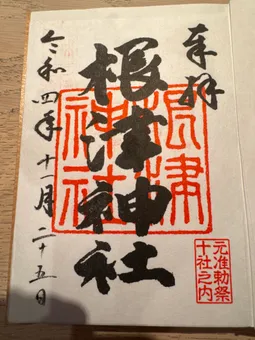 奉拝
根津神社
根津神社
元准勅祭
十社之内
令和四年十一月二十五日